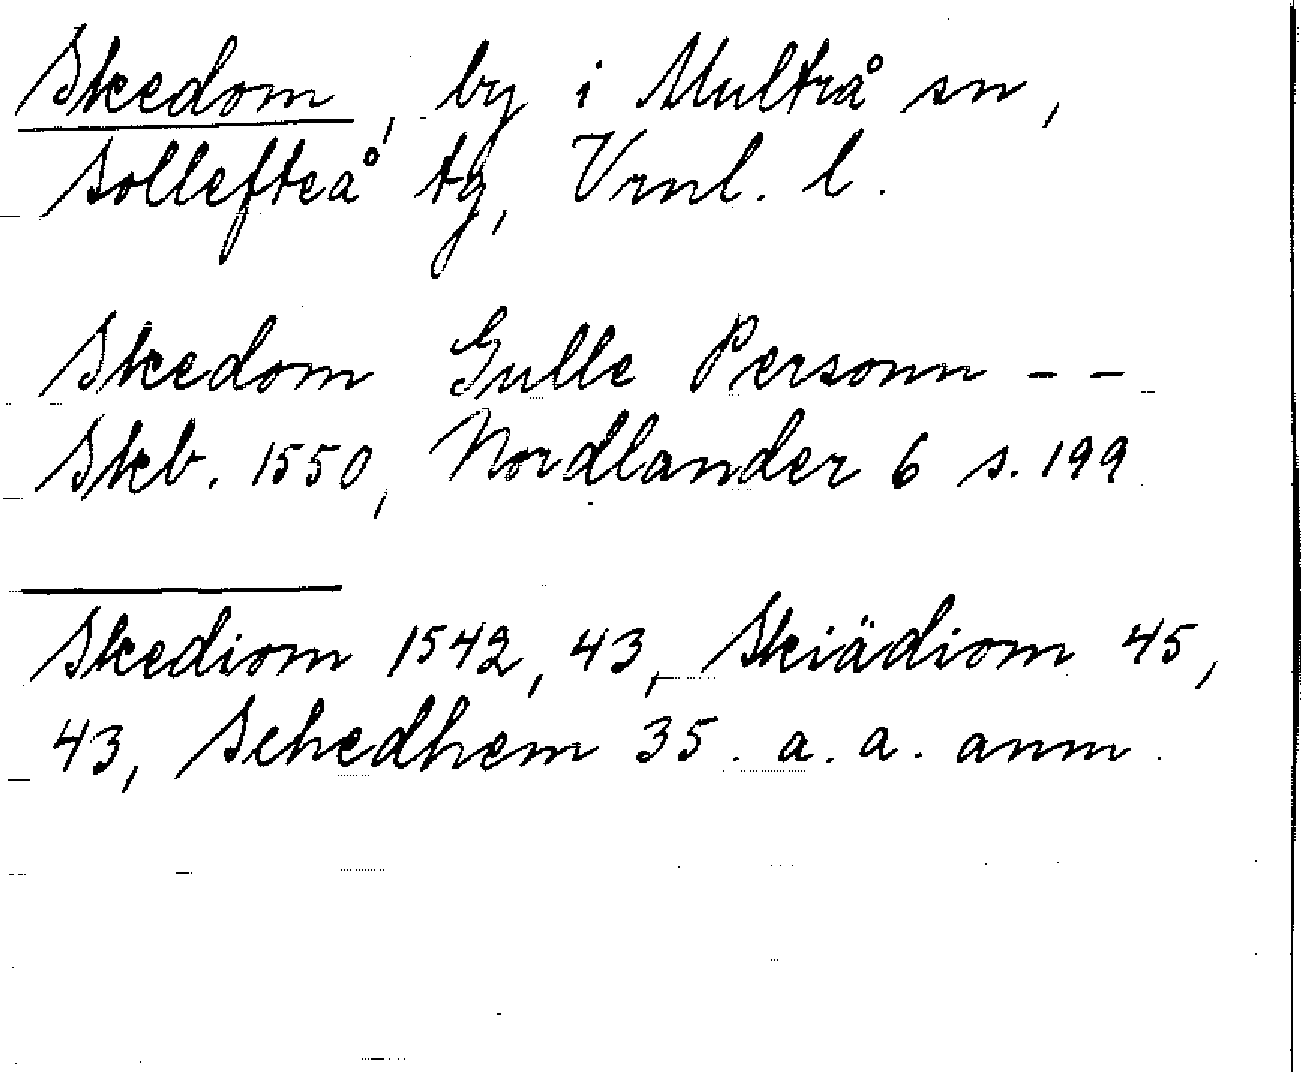 Skedom, by i Multrå sn,
Sollefteå tg, Vrnl. l.
Skedom Gulle Personn - -
Skb. 1550, Nordlander 6 s. 199
Skediom 1542, 43, Skiädiom 45,
43, Schedhem 35. a. a. anm.